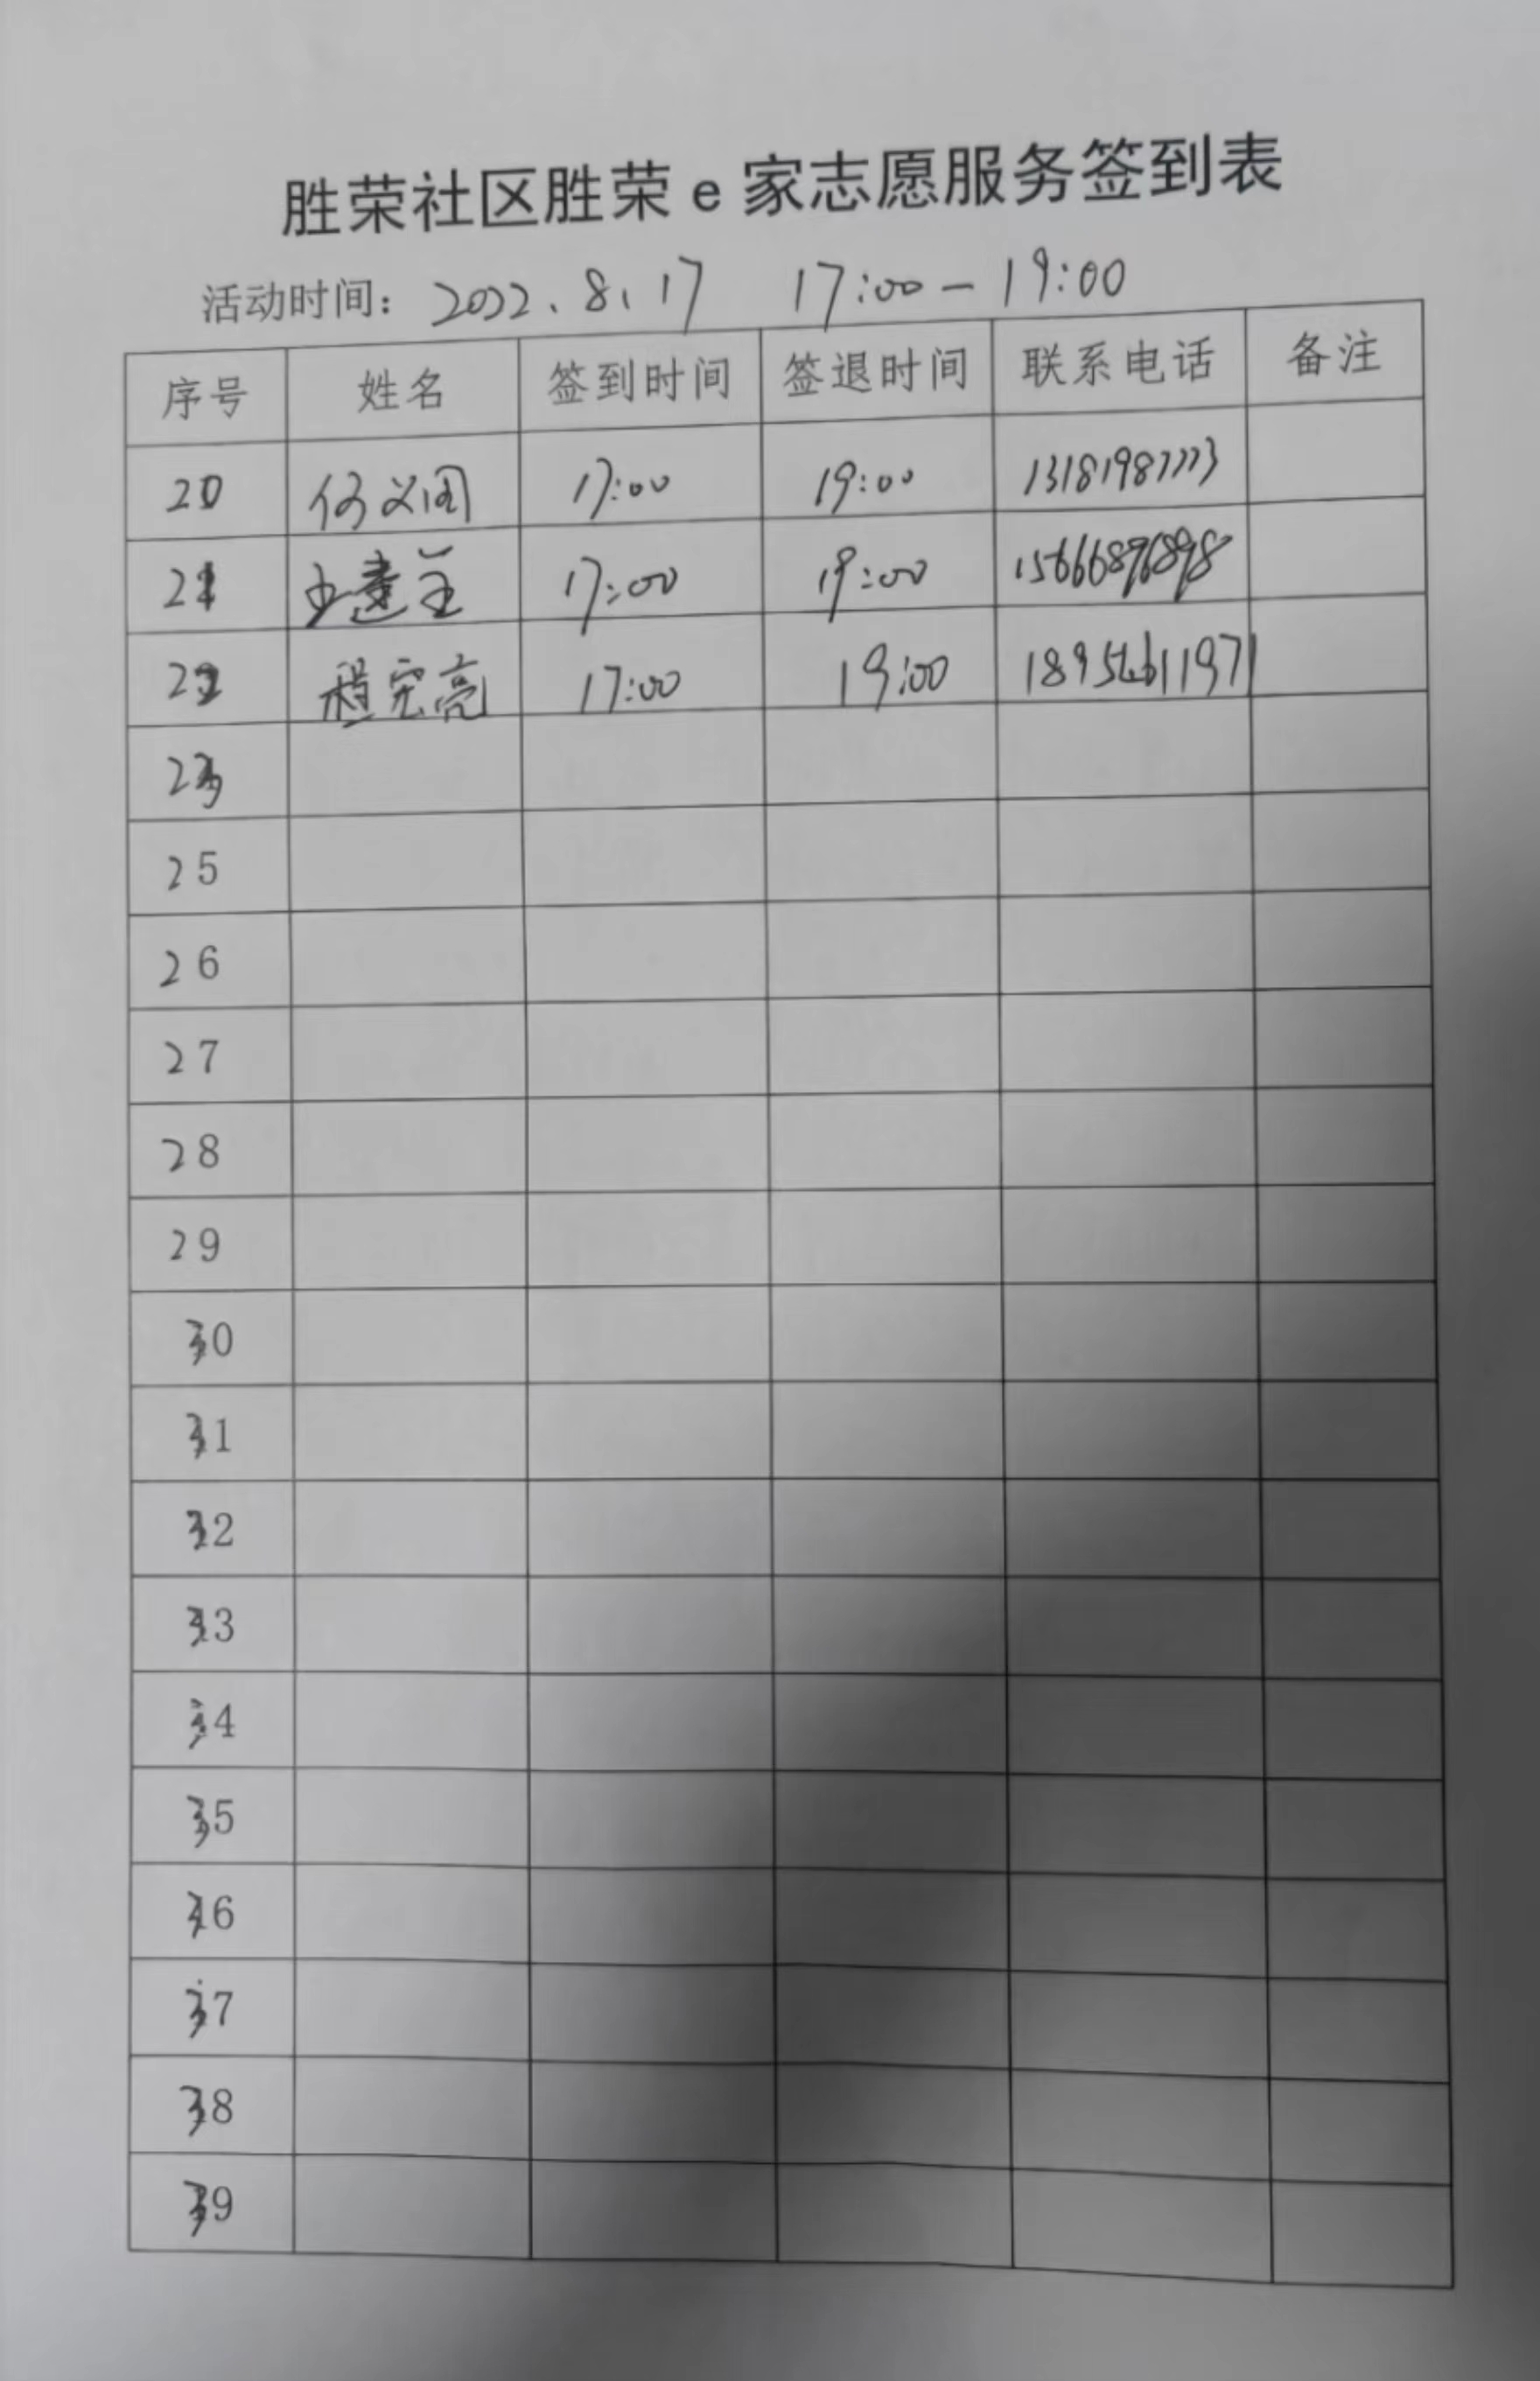 胜荣社区胜荣e家志愿服务签到表
活动时间：2022.8.17 17:00-19:00
序号 姓名 签到时间 签退时间 联系电话 备注
20 何义周 17:00 19:00
21 17:00 19:00 15666896898
22 程宪亮 17:00 19:00
23
25
26
27
28
29
30
31
32
33
34
35
36
37
38
39